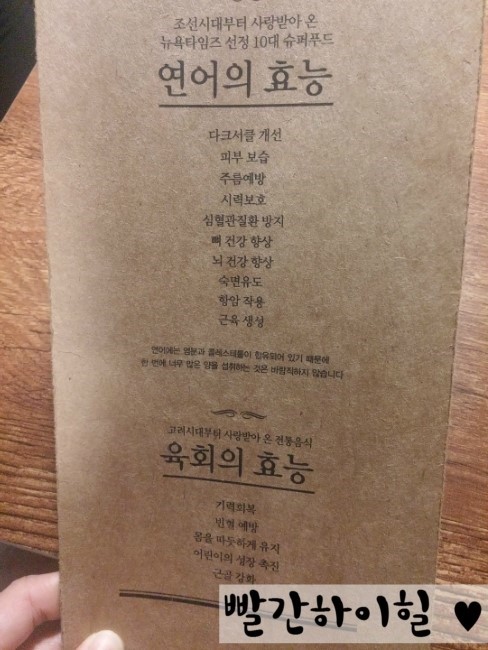 조선시대부터 사랑받아 온
뉴욕타임즈 선정 10대 슈퍼푸드
연어의 효능
다크서클 개선
피부 보습
주름예방
시력보호
심혈관질환 방지
뼈 건강 향상
뇌 건강 향상
숙면유도
항암 작용
근육 생성
연어에는 염분과 콜레스테롤이 함유되어 있기 때문에
한 번에 너무 많은 양을 섭취하는 것은 바람직하지 않습니다
고려시대부터 사랑받아 온 전통음식
육회의 효능
기력회복
빈혈 예방
몸을 따뜻하게 유지
어린이의 성장 촉진
근골 강화
빨간하이힐 ♥